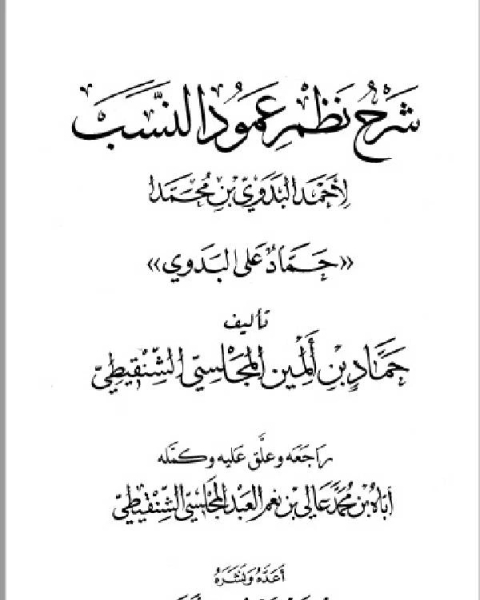 شَرْحُ نَظْمِ عَمُودِ النَّسَبِ
لِأَحْمَدَ البَدَوِيّ بنِ مُحَمَّدا
«حَمَّادٌ عَلى البَدَوي»
تأليف
حَمَّادِ بنِ أَلْمِين المَجْلِسِيّ الشِّنْقِيطِيّ
رَاجَعَه وعلَّق عَليْه وكمّله
أبَّاهُ بْن مُحَمَّد عَالِي بْن نِعْمَ العَبْد المَجْلِسِيّ الشِّنْقِيطِيّ
أَعَدَّهُ وَنَشَرَهُ